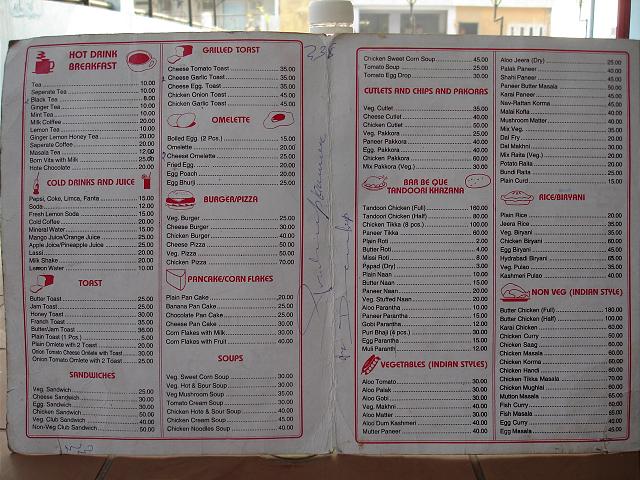 HOT DRINK
BREAKFAST
Tea 10.00
Seperate Tea 10.00
Black Tea 8.00
Ginger Tea 10.00
Mint Tea 10.00
Milk Colffee 20.00
Lemon Tea 10.00
Ginger Lemon Honey Tea 20.00
Seperate Coffee 20.00
Masala Tea 12.00
Born Vita with Milk 25.00
Hote Chocolate 20.00
COLD DRINKS AND JUICE
Pepsi, Coke, Limca, Fanta 15.00
Soda 15.00
Fresh Lemon Soda 15.00
Cold Coffee 20.00
Mineral Water 15.00
Mango Juice/Orange Juice 25.00
Apple Juice/Pineapple Juice 25.00
Lassi 20.00
Milk Shake 20.00
Lemon Water 10.00
TOAST
Butter Toast 25.00
Jam Toast 25.00
Honey Toast 30.00
Franch Toast 35.00
Butter/Jam Toast 35.00
Plain Toast (1 Pcs.) 5.00
Plain Omlete with 2 Toast 20.00
Onion Tomato Cheese Omlete with Toast 30.00
Onion Tomato Omlete with 2 Toast 25.00
SANDWICHES
Veg. Sandwich 25.00
Cheese Sandwich 30.00
Egg. Sandwich 30.00
Chicken Sandwich 50.00
Veg Club Sandwich 40.00
Non-Veg Club Sandwich 50.00
GRILLED TOAST
Cheese Tomato Toast 35.00
Cheese Garlic Toast 35.00
Cheese Egg. Toast 35.00
Chicken Onion Toast 45.00
Chicken Garlic Toast 45.00
OMELETTE
Boiled Egg. (2 Pcs.) 15.00
Omelette 20.00
Cheese Omelette 25.00
Fried Egg. 25.00
Egg Poach 20.00
Egg Bhurji 25.00
BURGER/PIZZA
Veg. Burger 25.00
Cheese Burger 30.00
Chicken Burger 40.00
Cheese Pizza 50.00
Veg. Pizza 50.00
Chicken Pizza 70.00
PANCAKE/CORN FLAKES
Plain Pan Cake 20.00
Banana Pan Cake 25.00
Chocolate Pan Cake 25.00
Cheese Pan Cake 30.00
Corn Flakes with Milk 30.00
Corn Flakes with Fruit 40.00
SOUPS
Veg. Sweet Corn Soup 30.00
Veg. Hot & Sour Soup 30.00
Veg Mushroom Soup 35.00
Tomato Cream Soup 30.00
Chicken Hote & Sour Soup 40.00
Chicken Cream Soup 45.00
Chicken Noodles Soup 40.00
Chicken Sweet Corn Soup 45.00
Tomato Soup 25.00
Tomato Egg Drop 30.00
CUTLETS AND CHIPS AND PAKORAS
Veg. Cutlet 35.00
Cheese Cutlet 40.00
Chicken Cutlet 50.00
Veg. Pakkora 25.00
Paneer Pakkora 40.00
Egg. Pakkora 40.00
Chicken Pakkora 60.00
Mix Pakkora (Veg.) 30.00
BAR BE QUE
TANDOORI KHAZANA
Tandoori Chicken (Full) 160.00
Tandoori Chicken (Half) 80.00
Chicken Tikka (8 pcs.) 100.00
Paneer Tikka 60.00
Plain Roti 2.00
Butter Roti 4.00
Missi Roti 8.00
Papad (Dry) 3.00
Plain Naan 10.00
Butter Naan 15.00
Paneer Naan 20.00
Veg. Stuffed Naan 20.00
Aloo Parantha 10.00
Paneer Parantha 15.00
Gobi Parantha 12.00
Puri Bhaji (4 pcs.) 30.00
Egg Parantha 15.00
Muli Paranth 12.00
VEGETABLES (INDIAN STYLES)
Aloo Tomato 30.00
Aloo Palak 30.00
Aloo Gobi 30.00
Veg. Makhni 40.00
Aloo Matter 30.00
Aloo Dum Kashmeri 40.00
Mutter Paneer 40.00
Aloo Jeera (Dry) 25.00
Palak Paneer 40.00
Shahi Paneer 45.00
Paneer Butter Masala 50.00
Karai Paneer 45.00
Nav-Rattan Korma 45.00
Malai Kofta 40.00
Mushroom Matter 40.00
Mix Veg. 35.00
Dal Fry 20.00
Dal Makhni 30.00
Mix Raita (Veg.) 20.00
Potato Raita 20.00
Bundi Raita 25.00
Plain Curd 15.00
RICE/BIRYANI
Plain Rice 20.00
Jeera Rice 35.00
Veg. Biryani 35.00
Chicken Biryani 60.00
Egg Biryani 45.00
Hydrabadi Biryani 65.00
Veg. Pulao 35.00
Kashmeri Pulao 40.00
NON VEG (INDIAN STYLE)
Butter Chicken (Full) 180.00
Butter Chicken (Half) 100.00
Karai Chicken 60.00
Chicken Curry 50.00
Chicken Saag 60.00
Chicken Masala 60.00
Chicken Korma 60.00
Chicken Handi 60.00
Chicken Tikka Masala 70.00
Chicken Mughlai 60.00
Mutton Masala 65.00
Fish Curry 60.00
Fish Masala 65.00
Egg Curry 40.00
Egg Masala 45.00